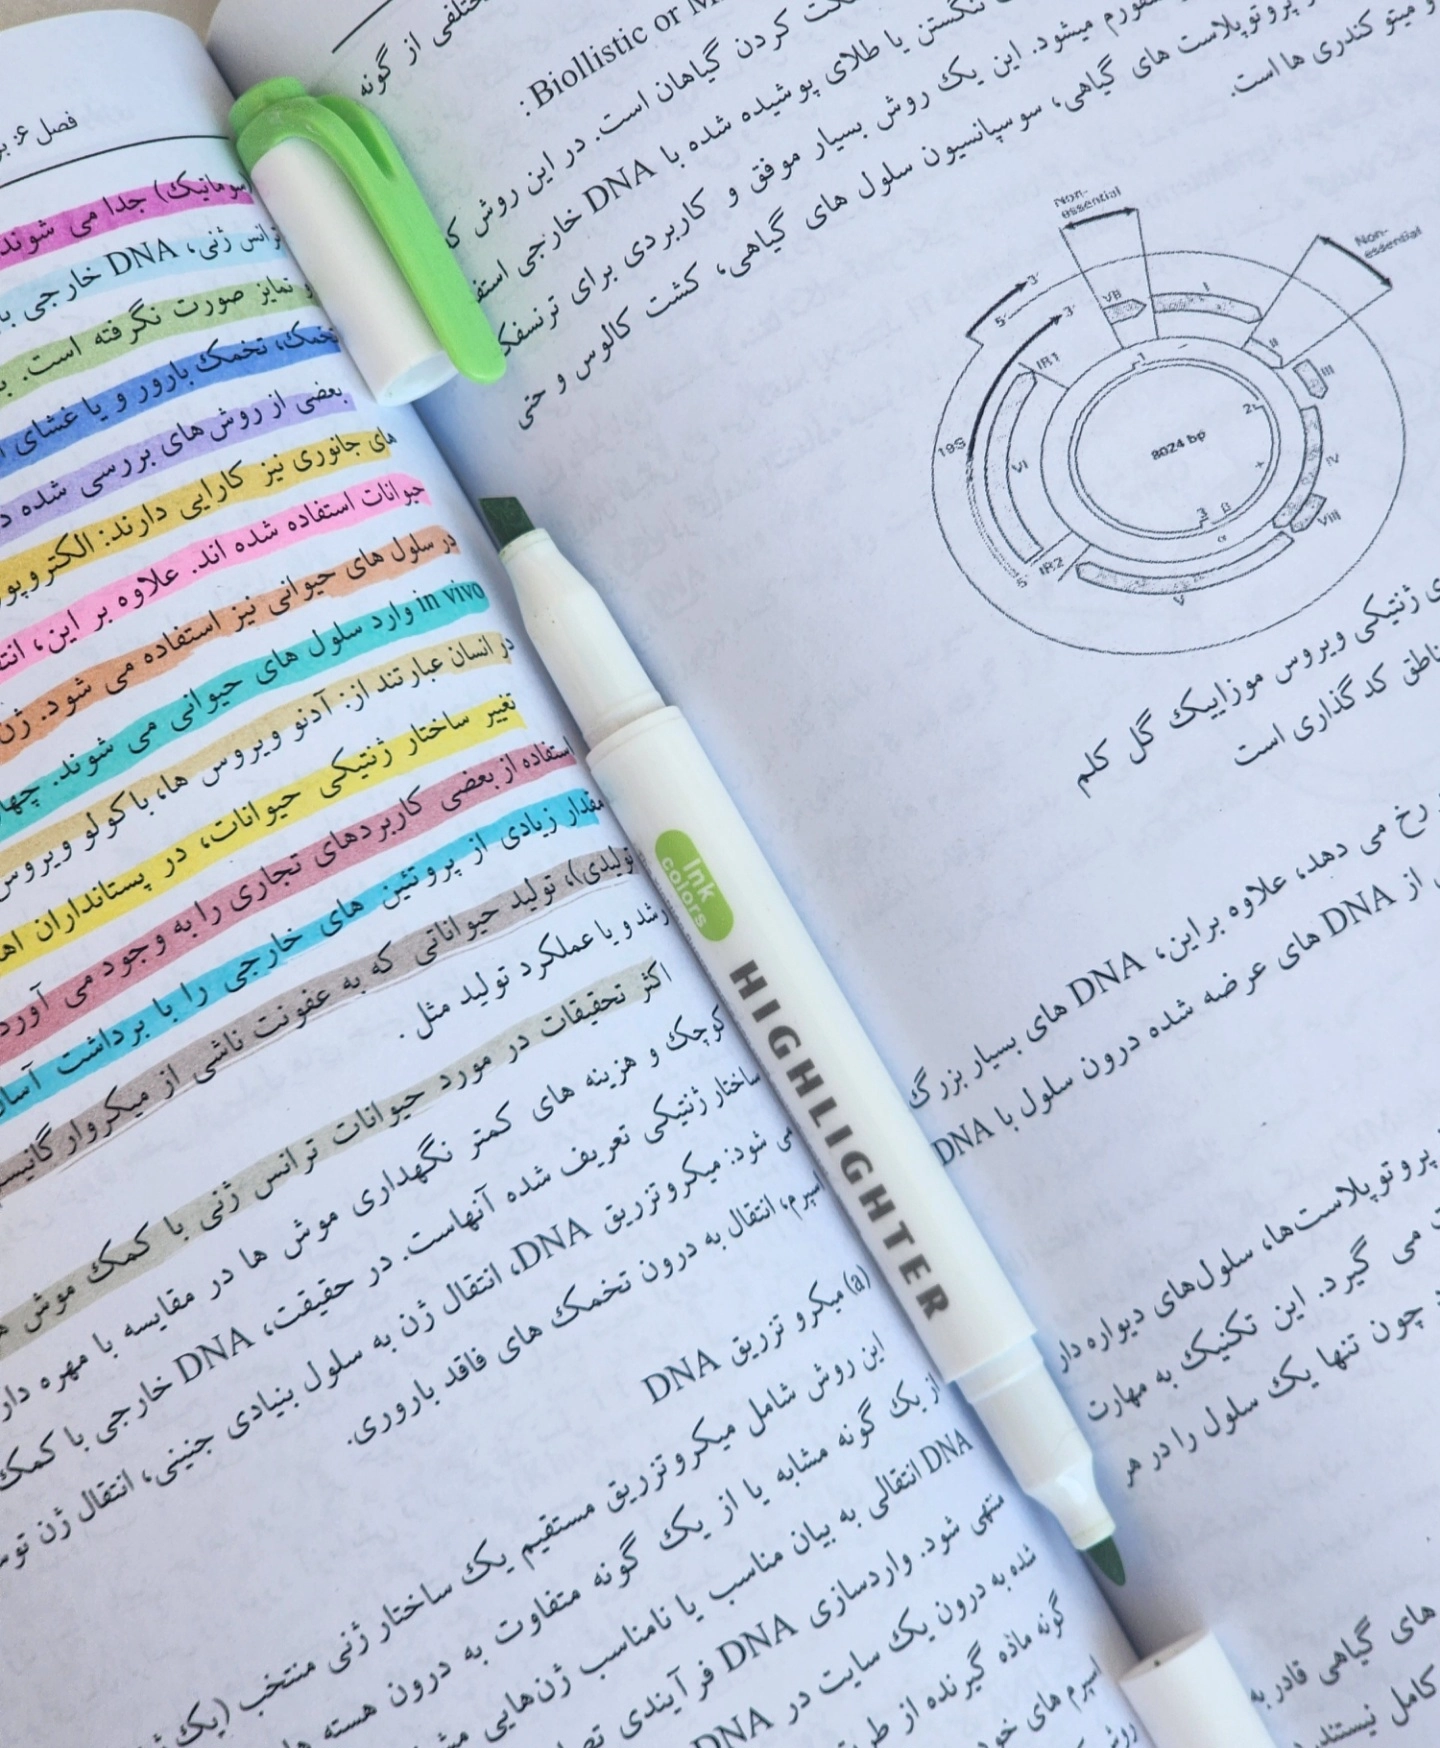 فصل ۶:
سوماتیک) جدا می شوند
ترانس ژنی، DNA خارجی
و تمایز صورت نگرفته است.
تخمک، تخمک بارور و یا غشای
بعضی از روش‌های بررسی شده
های جانوری نیز کارایی دارند:
حیوانات استفاده شده اند. علاوه بر این،
در سلول های حیوانی نیز استفاده می شود.
in vivo وارد سلول های حیوانی می شوند.
در انسان عبارتند از: آدنو ویروس ها، باکولو ویروس
تغییر ساختار ژنتیکی حیوانات، در پستانداران
استفاده از بعضی کاربردهای تجاری را به وجود می آورد
مقدار زیادی از پروتئین های خارجی را با برداشت
تولیدی)، تولید حیواناتی که به عفونت ناشی از
رشد و یا عملکرد تولید مثل .
اکثر تحقیقات در مورد حیوانات ترانس ژنی با کمک موش
کوچک و هزینه های کمتر نگهداری موش ها در مقایسه با مهره
ساختار ژنتیکی تعریف شده آنهاست. در حقیقت، DNA خارجی با کمک
می شود: میکروتزریق DNA، انتقال ژن به سلول بنیادی جنینی، انتقال ژن
اسپرم، انتقال به درون تخمک های فاقد باروری.
(a) میکرو تزریق DNA
این روش شامل میکروتزریق مستقیم یک ساختار ژنی منتخب
از یک گونه مشابه یا از یک گونه متفاوت به درون هسته
DNA انتقالی به بیان مناسب یا نامناسب ژن‌هایی
منتهی شود. واردسازی DNA فرآیندی
شده به درون یک سایت در DNA
گونه ماده گیرنده از
اسپرم های
روش
از گونه
Biollistic or
کردن گیاهان است. در این روش
تنگستن یا طلای پوشیده شده با DNA خارجی
میشود. این یک روش بسیار موفق و کاربردی برای
پروتوپلاست های گیاهی، سوسپانسیون سلول های گیاهی، کشت کالوس و حتی
میتو کندری ها است.
Non-
essential
Non-
essential
3'
5'
3'
VII
I
II
III
IR1
1
2
19S
VI
8024 bp
IV
3
β
α
VIII
5'
IR2
V
ژنتیکی ویروس موزاییک گل کلم
کد گذاری است
رخ می دهد، علاوه براین، DNA های بسیار بزرگ
از DNA های عرضه شده درون سلول با DNA
پروتوپلاست‌ها، سلول‌های دیواره دار
می گیرد. این تکنیک به مهارت
چون تنها یک سلول را در هر
های گیاهی قادر به
کامل نیستند.
Ink
colors
HIGHLIGHTER